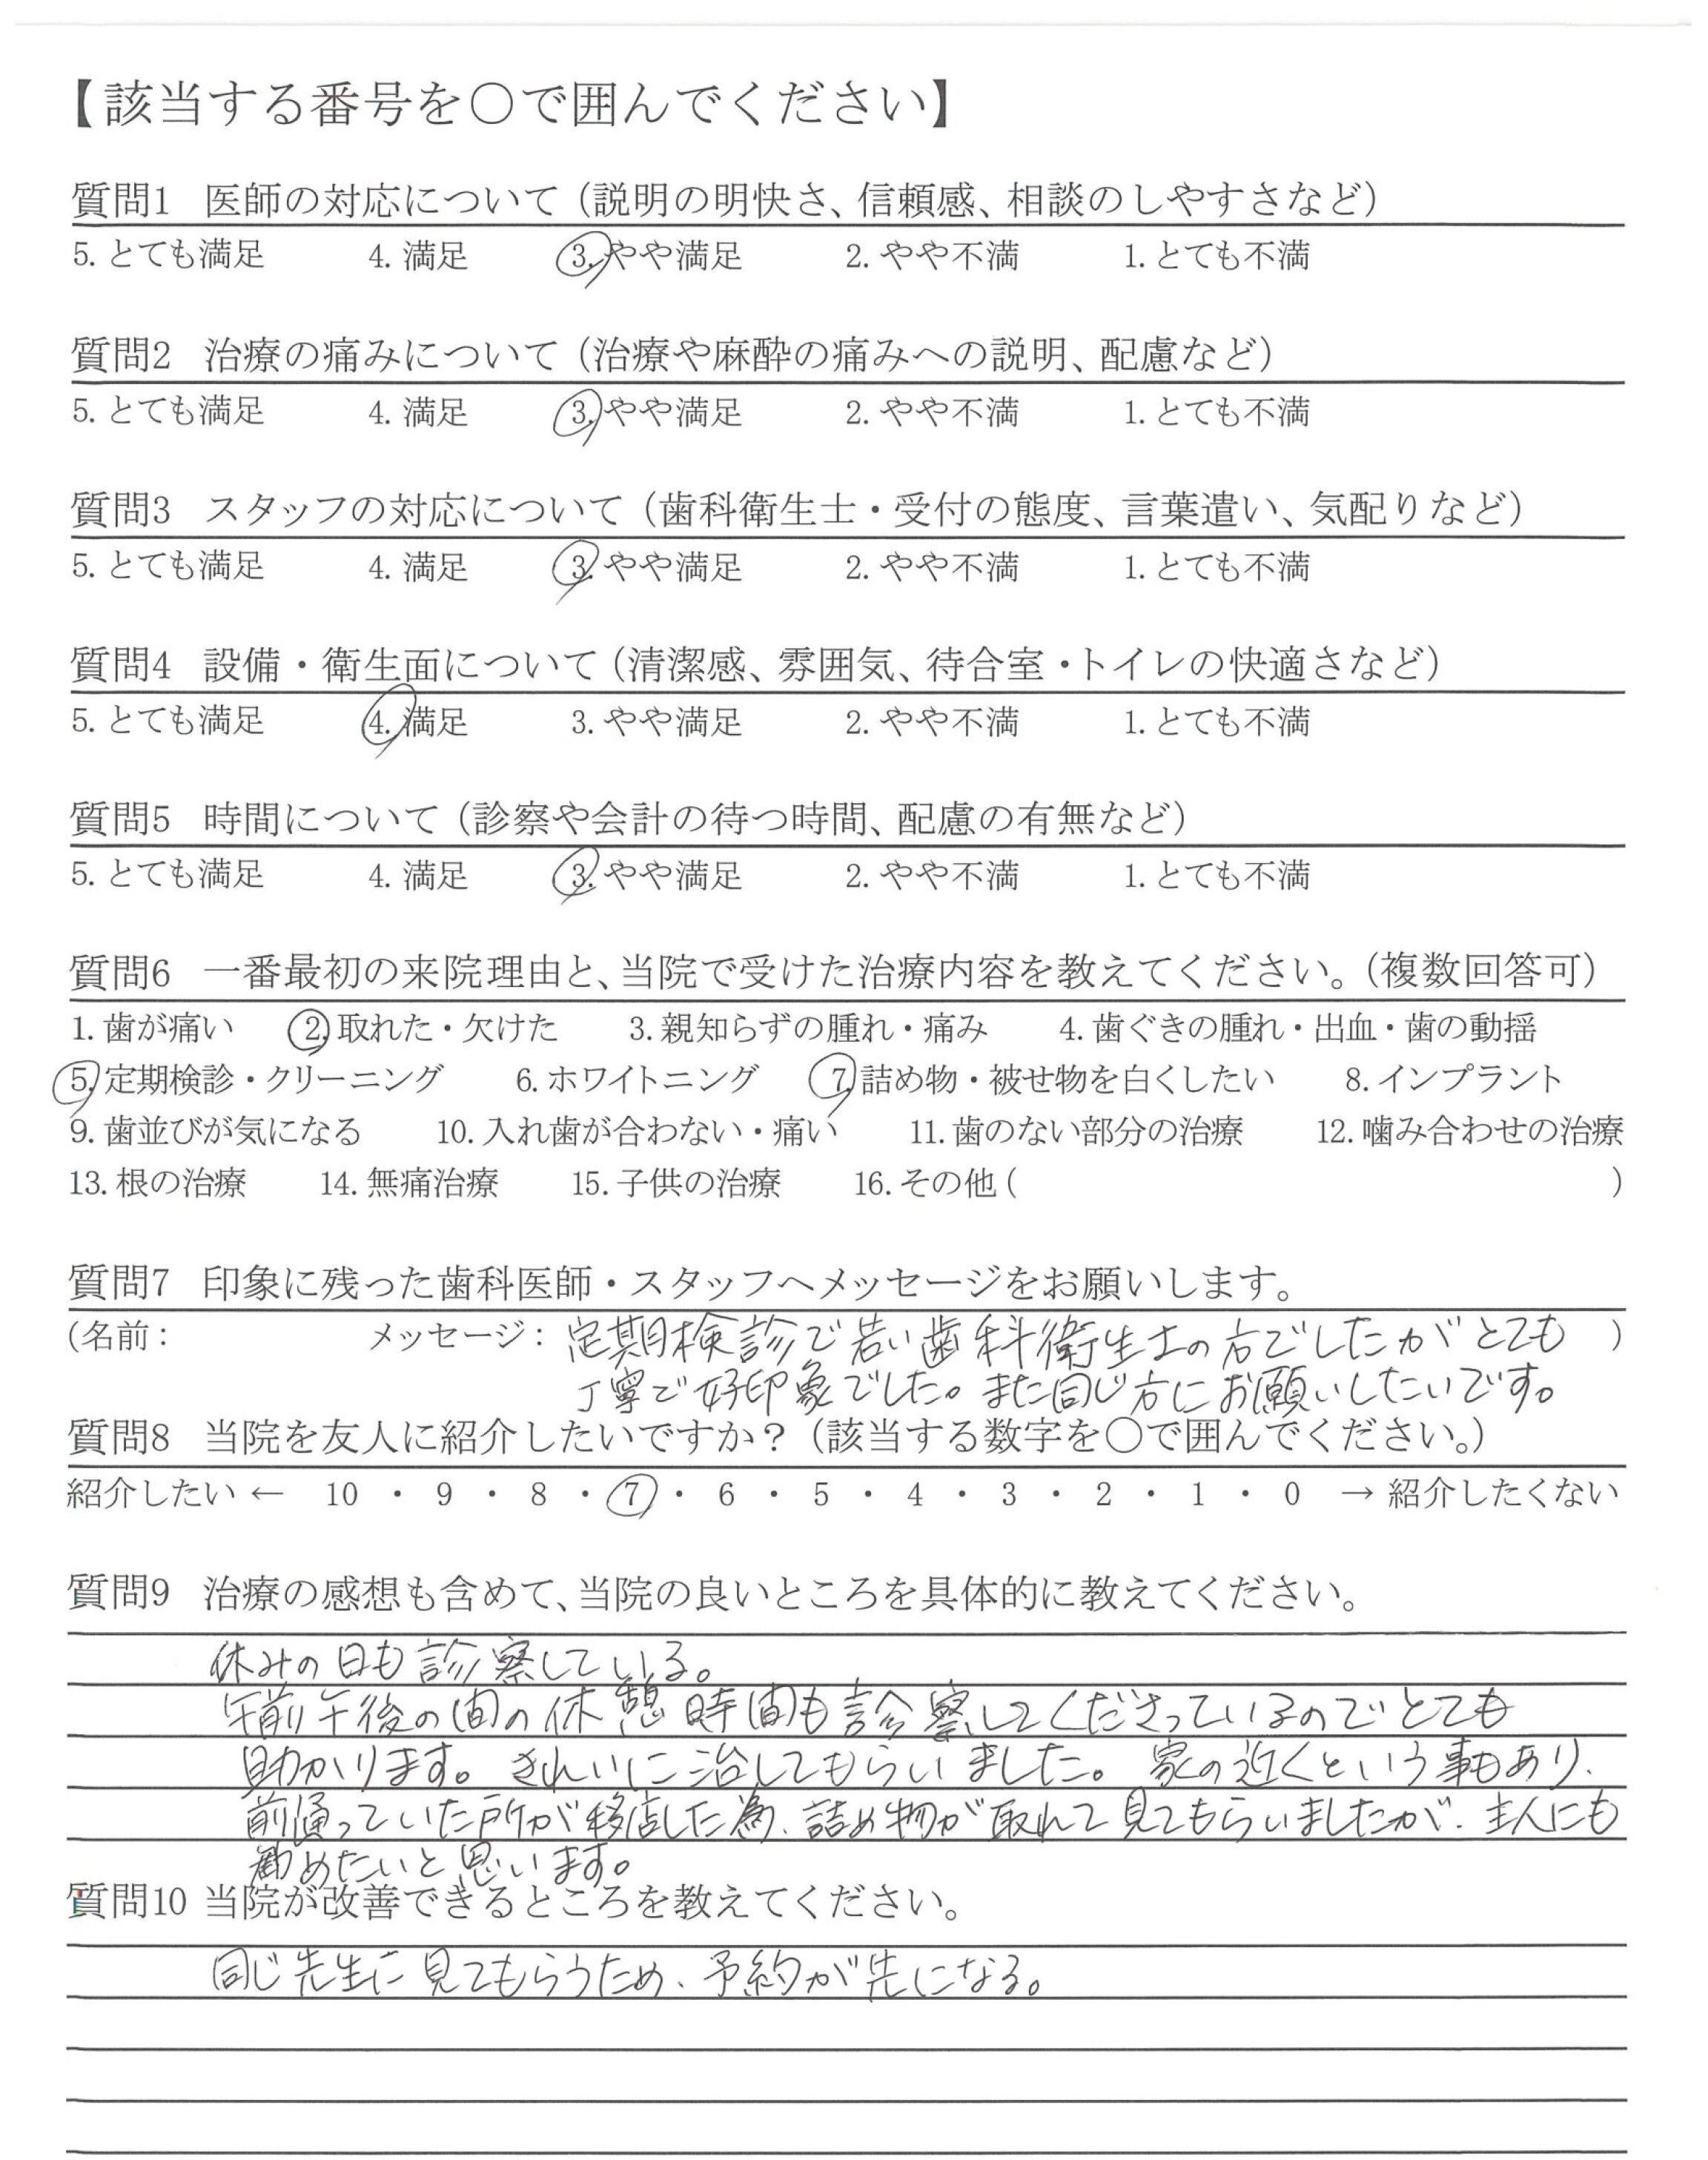 【該当する番号を〇で囲んでください】
質問1 医師の対応について（説明の明快さ、信頼感、相談のしやすさなど）
5. とても満足 4. 満足 3. やや満足 2. やや不満 1. とても不満
質問2 治療の痛みについて（治療や麻酔の痛みへの説明、配慮など）
5. とても満足 4. 満足 3. やや満足 2. やや不満 1. とても不満
質問3 スタッフの対応について（歯科衛生士・受付の態度、言葉遣い、気配りなど）
5. とても満足 4. 満足 3. やや満足 2. やや不満 1. とても不満
質問4 設備・衛生面について（清潔感、雰囲気、待合室・トイレの快適さなど）
5. とても満足 4. 満足 3. やや満足 2. やや不満 1. とても不満
質問5 時間について（診察や会計の待つ時間、配慮の有無など）
5. とても満足 4. 満足 3. やや満足 2. やや不満 1. とても不満
質問6 一番最初の来院理由と、当院で受けた治療内容を教えてください。（複数回答可）
1. 歯が痛い 2. 取れた・欠けた 3. 親知らずの腫れ・痛み 4. 歯ぐきの腫れ・出血・歯の動揺
5. 定期検診・クリーニング 6. ホワイトニング 7. 詰め物・被せ物を白くしたい 8. インプラント
9. 歯並びが気になる 10. 入れ歯が合わない・痛い 11. 歯のない部分の治療 12. 噛み合わせの治療
13. 根の治療 14. 無痛治療 15. 子供の治療 16. その他（ ）
質問7 印象に残った歯科医師・スタッフへメッセージをお願いします。
（名前： メッセージ： 定期検診で若い歯科衛生士の方でしたがとても ）
丁寧で好印象でした。また同じ方にお願いしたいです。
質問8 当院を友人に紹介したいですか？（該当する数字を〇で囲んでください。）
紹介したい ← 10 ・ 9 ・ 8 ・ 7 ・ 6 ・ 5 ・ 4 ・ 3 ・ 2 ・ 1 ・ 0 → 紹介したくない
質問9 治療の感想も含めて、当院の良いところを具体的に教えてください。
休みの日も診察している。
午前午後の間の休憩時間も診察してくださっているのでとても
助かります。きれいに治してもらいました。家の近くという事もあり、
前通っていた所が移店した為、詰め物が取れて見てもらいましたが、主人にも
勧めたいと思います。
質問10 当院が改善できるところを教えてください。
同じ先生に見てもらうため、予約が先になる。